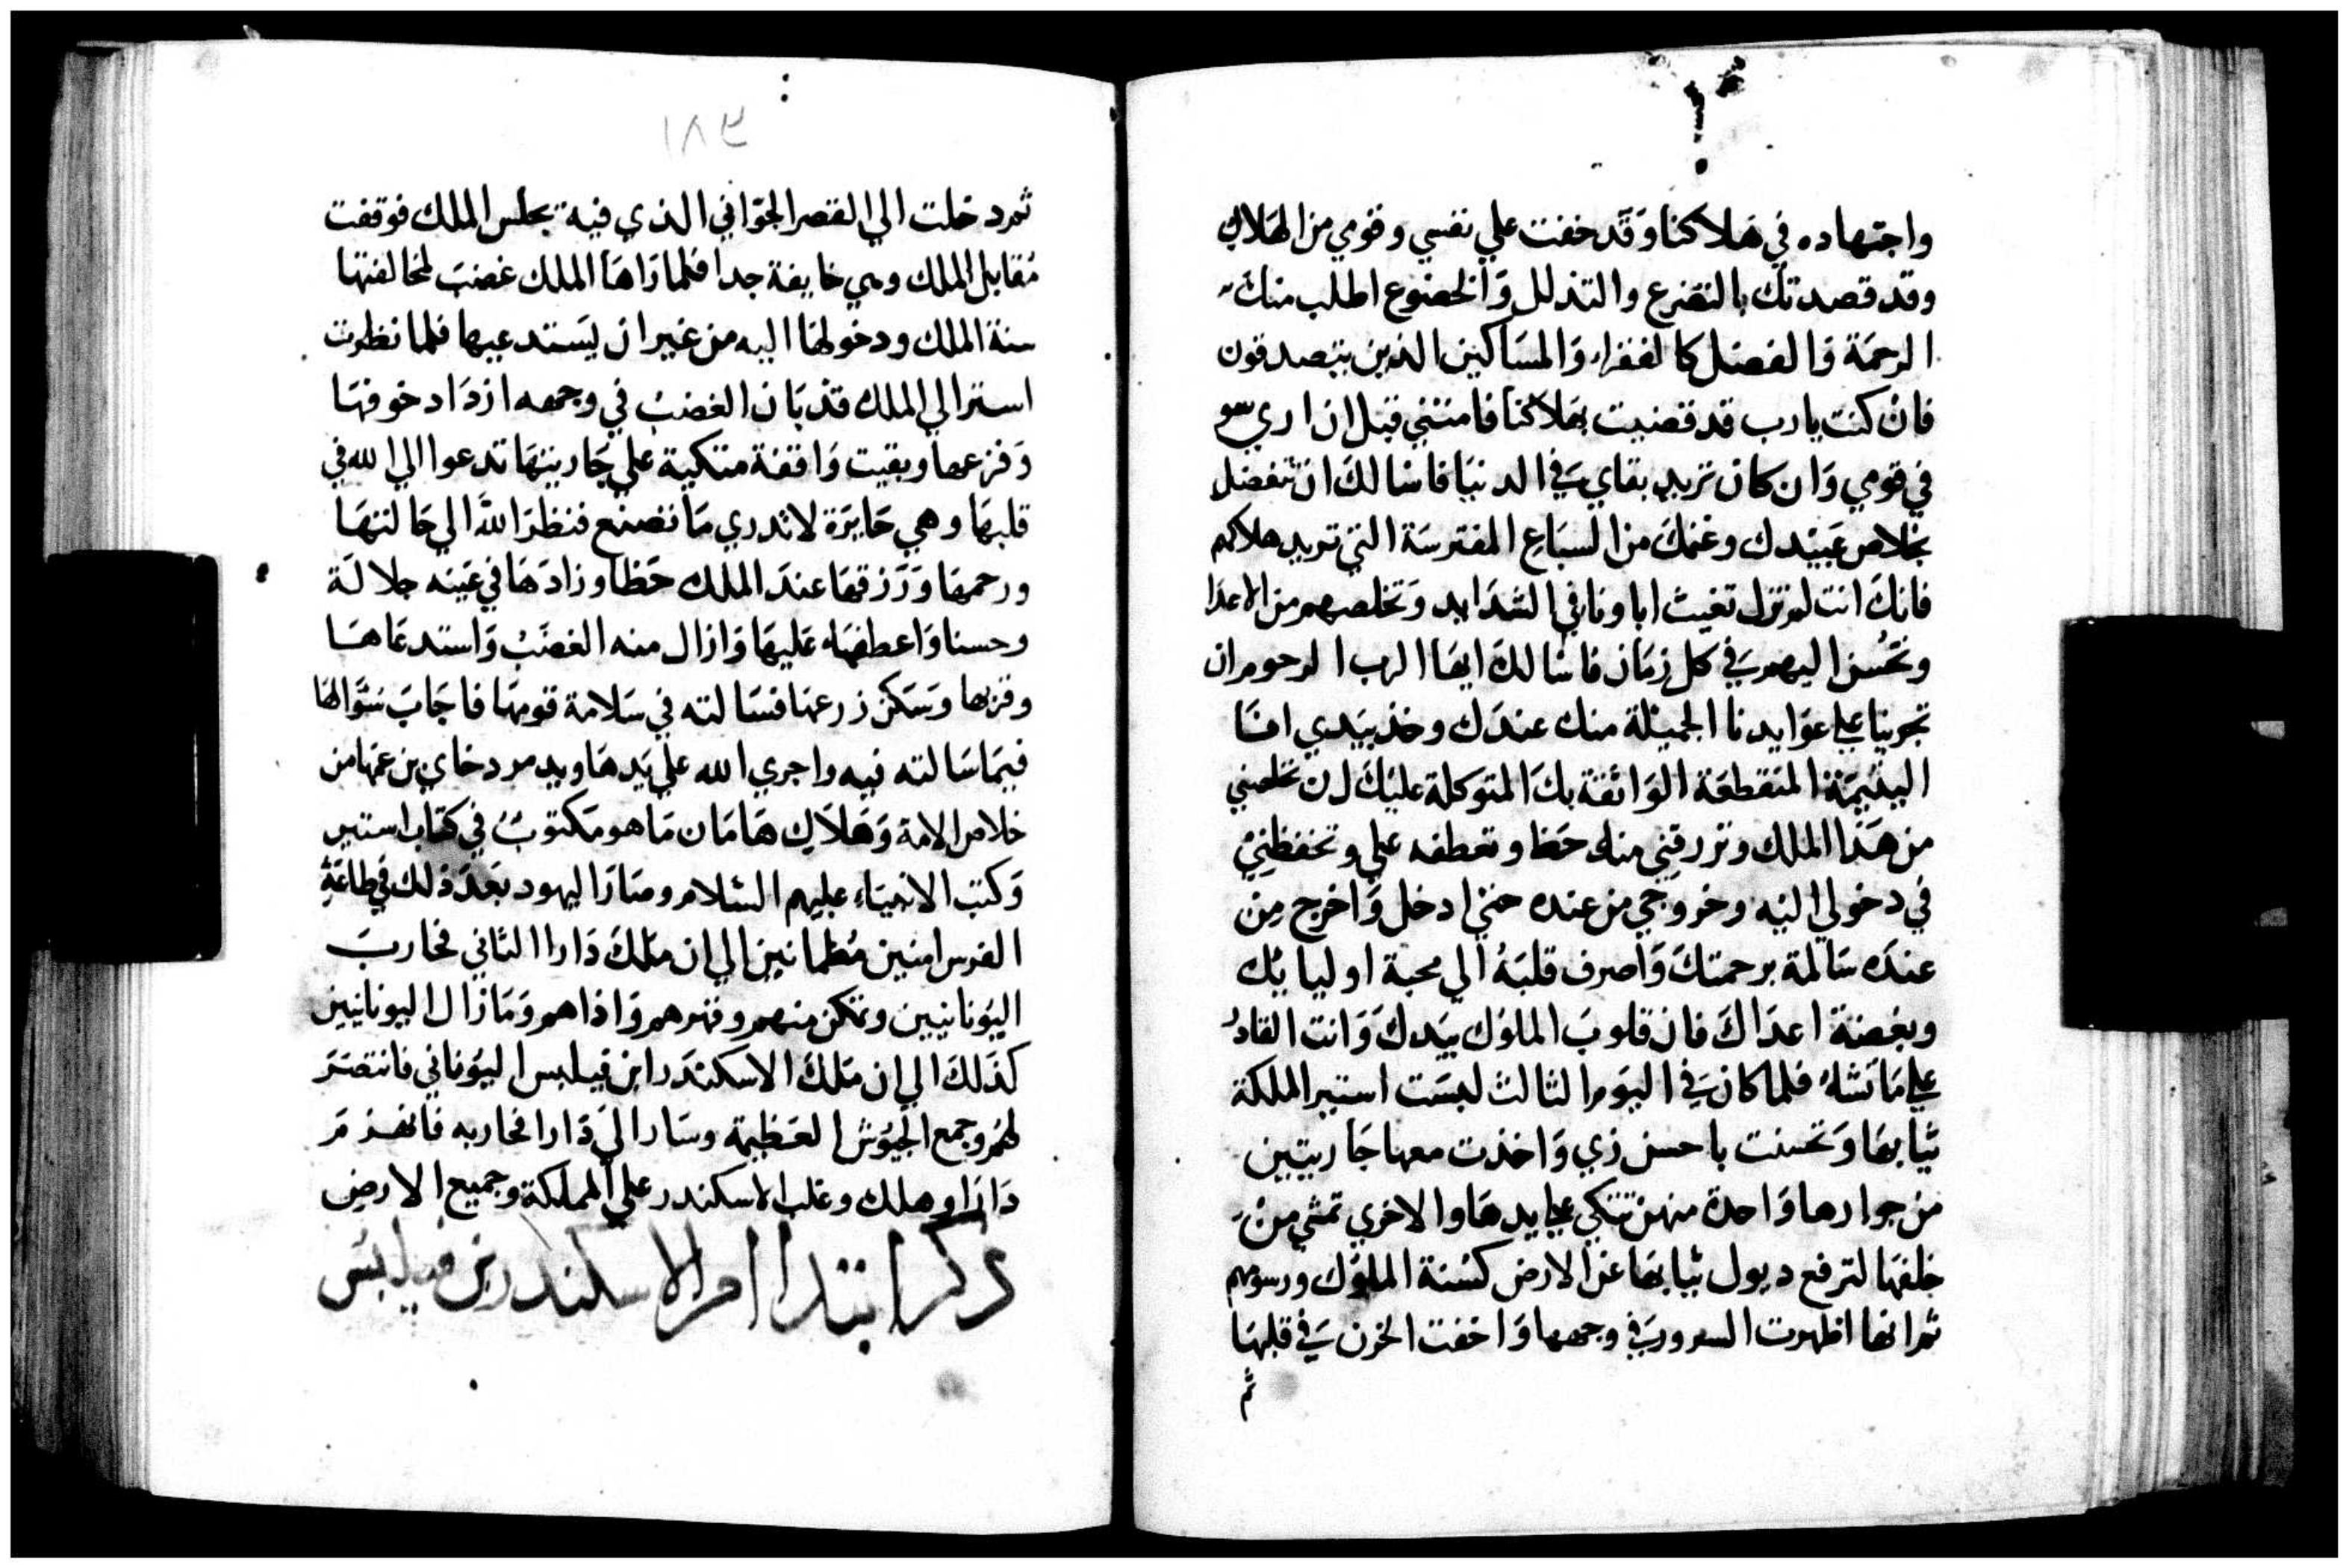 واجتهاده في هلاكنا وقد خفت علي نفسي وقومي من الهلاك
وقد قصدتك بالتضرع والتذلل والخضوع اطلب منك
الرحمة والفضل كالفقراء والمساكين الذين يتصدقون
فان كنت يارب قد قضيت بهلاكنا فامتني قبل ان اري سو
في قومي وان كان تريد بقاي في الدنيا فاسالك ان تتفضل
بخلاص عبيدك وغنمك من السباع المفترسة التي تريد هلاكهم
فانك انت لم تزل تغيث اباونا في الشدايد وتخلصهم من الاعدا
وتحسن اليهم في كل زمان فاسالك ايها الرب الرحوم ان
تجرينا علي عوايدنا الجميلة منك عندك وخذ بيدي انا
اليتيمة المنقطعة الواثقة بك المتوكلة عليك لان تخلصني
من هذا الملك وترزقني منه حظا وتعطفه علي وتحفظني
في دخولي اليه وخروجي من عنده حتي ادخل واخرج من
عنده سالمة برحمتك واصرف قلبه الي محبة اوليايك
وبغضة اعداك فان قلوب الملوك بيدك وانت القادر
علي ما تشاء فلما كان في اليوم الثالث لبست استير الملكة
ثيابها وتحسنت باحسن زي واخذت معها جاريتين
من جوارها واحدة منهن تتكي علي يدها والاخري تمشي من
خلفها لترفع ديول ثيابها عن الارض كسنة الملوك ورسومهم
ثم انها اظهرت السرور في وجهها واخفت الحزن في قلبها
ثم
١٨٣
ثم دخلت الي القصر الجواني الذي فيه يجلس الملك فوقفت
مقابل الملك وهي خايفة جدا فلما راها الملك غضب لمخالفتها
سنة الملك ودخولها اليه من غير ان يستدعيها فلما نظرت
استر الي الملك قد بان الغضب في وجهه ازداد خوفها
وفزعها وبقيت واقفة متكية علي جاريتها تدعوا الي الله في
قلبها وهي حايرة لا تدري ما تصنع فنظر الله الي حالتها
ورحمها ورزقها عند الملك حظا وزادها في عينه جلالة
وحسنا واعطفه عليها وازال منه الغضب واستدعاها
وقربها وسكن زرعها فسالته في سلامة قومها فاجاب سوالها
فيما سالته فيه واجري الله علي يدها ويد مردخاي بن عمها من
خلاص الامة وهلاك هامان ما هو مكتوب في كتاب استير
وكتب الانبياء عليهم السلام وصار اليهود بعد ذلك في طاعة
الفرس امنين مطمانين الي ان ملك دارا الثاني فحارب
اليونانيين وتمكن منهم وقهرهم واذاهم ومازال اليونانيين
كذلك الي ان ملك الاسكندر ابن فيلبس اليوناني فانتصر
لهم وجمع الجيوش العظيمة وسار الي دارا فحاربه فانهزم
دارا وهلك وغلب الاسكندر علي المملكة وجميع الارض
ذكر ابتدا امر الاسكندر بن فيلبس